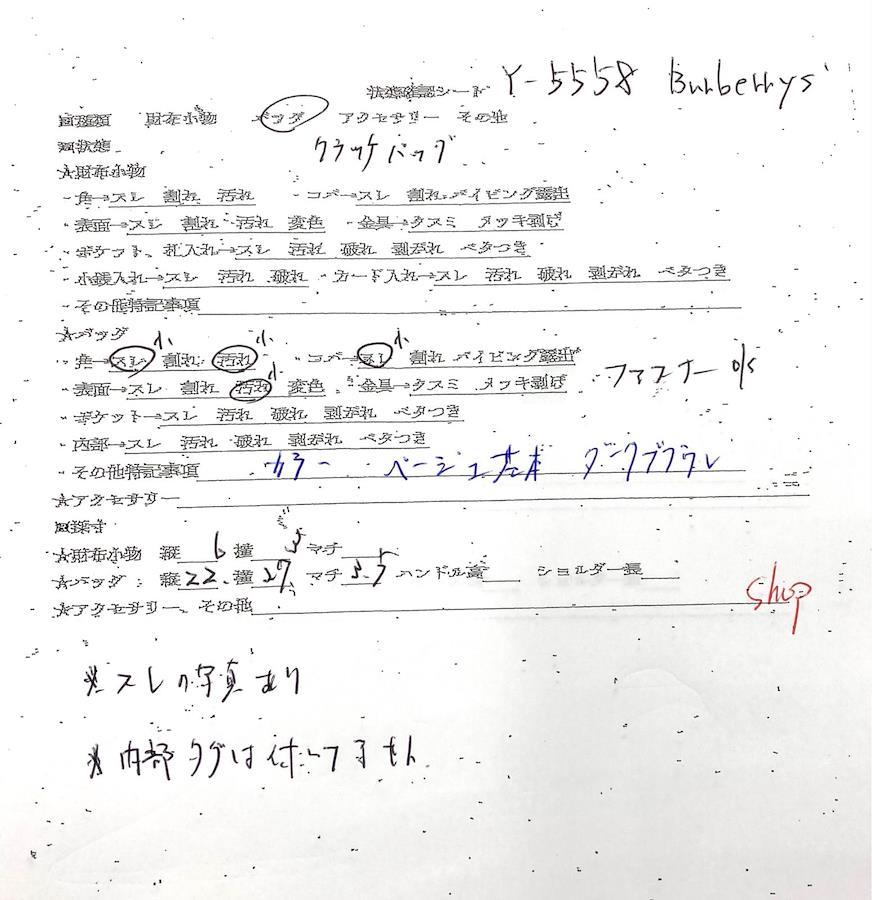 状態確認シート Y-5558 Burberrys'
□種類 財布小物 バッグ アクセサリー その他
□状態 クラッチバッグ
★財布小物
・角→スレ 割れ 汚れ ・コバ→スレ 割れ パイピング露出
・表面→スレ 割れ 汚れ 変色 ・金具→クスミ メッキ剥げ
・ポケット、札入れ→スレ 汚れ 破れ 剥がれ ベタつき
・小銭入れ→スレ 汚れ 破れ ・カード入れ→スレ 汚れ 破れ 剥がれ ベタつき
・その他特記事項
★バッグ 小 小 小
・角→スレ 割れ 汚れ ・コバ→スレ 割れ パイピング露出
・表面→スレ 割れ 汚れ 小 変色 ・金具→クスミ メッキ剥げ ファスナー
・ポケット→スレ 汚れ 破れ 剥がれ ベタつき
・内部→スレ 汚れ 破れ 剥がれ ベタつき
・その他特記事項 カラー ベージュ基本 ダークブラウン
★アクセサリー
□採寸
★財布小物 縦 6 横 マチ
★バッグ：縦22 横27 マチ3.5 ハンドル高 ショルダー長
★アクセサリー、その他
shop
※スレの写真あり
※内部タグは付いてません